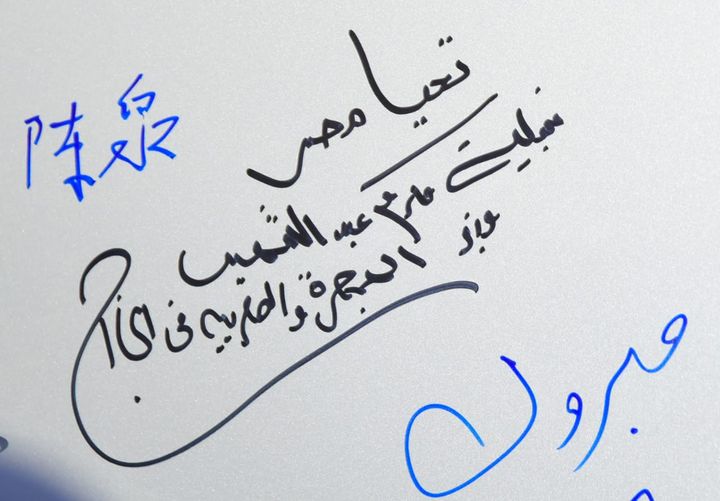 陈泉
تحيا مصر
نبيلة مكرم عبد الشهيد
وزير الهجرة والمصريين فى الخارج
مبروك